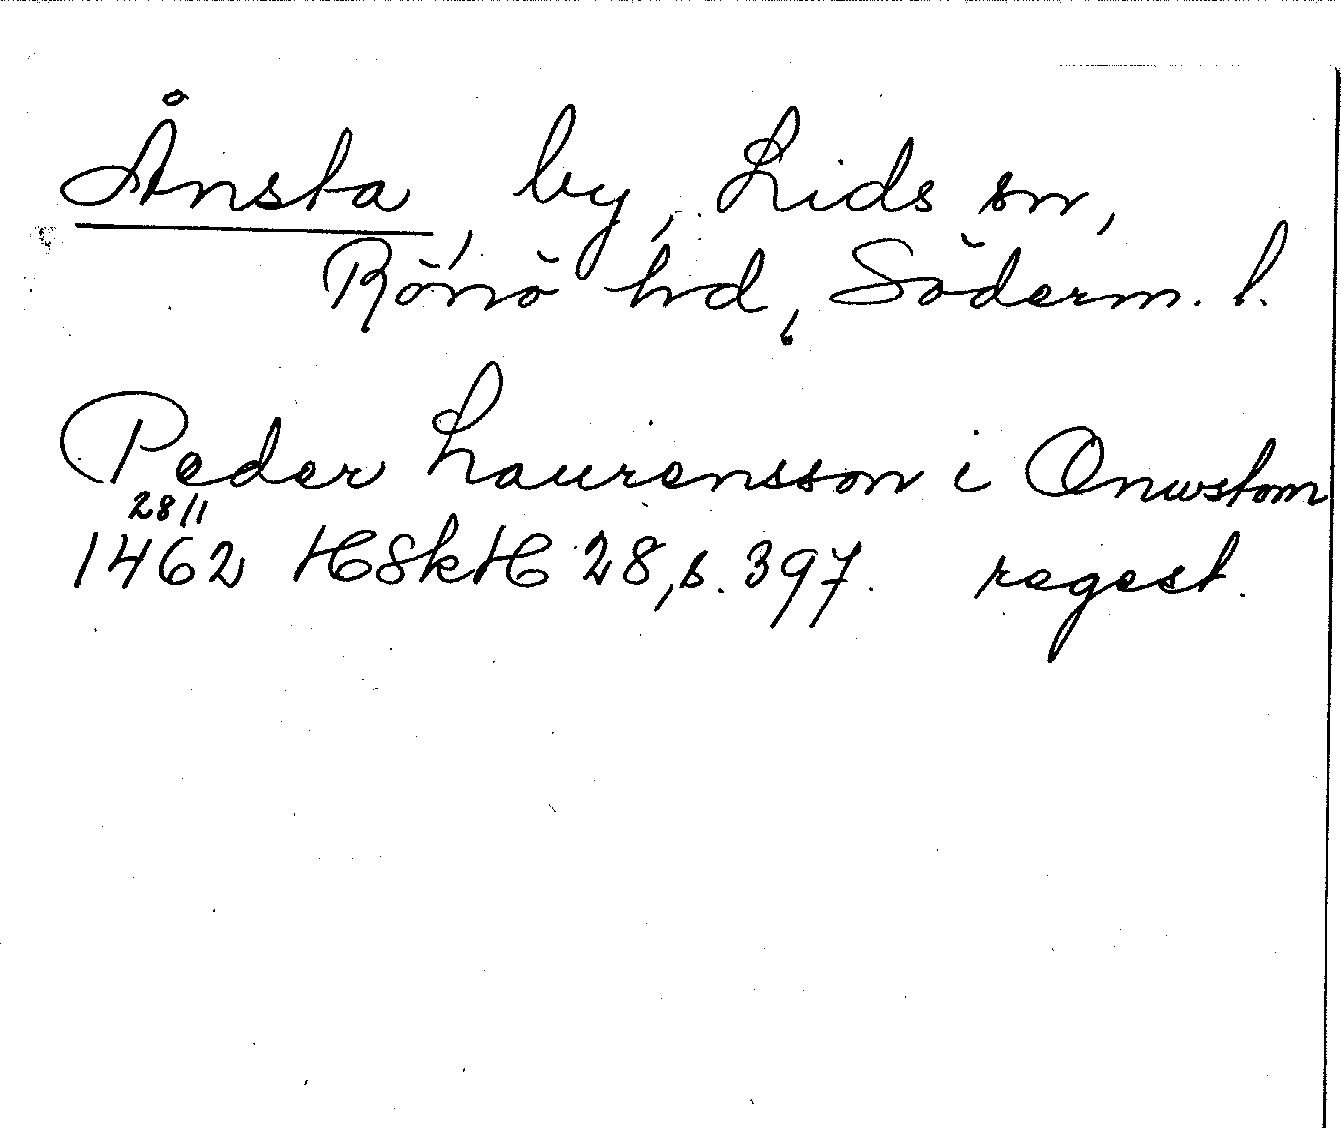 Ånsta, by, Lids sn,
Rönö hd, Söderm. l.
Peder Laurensson i Onwstom
28/1
1462 HSkH 28, s. 397. regest.